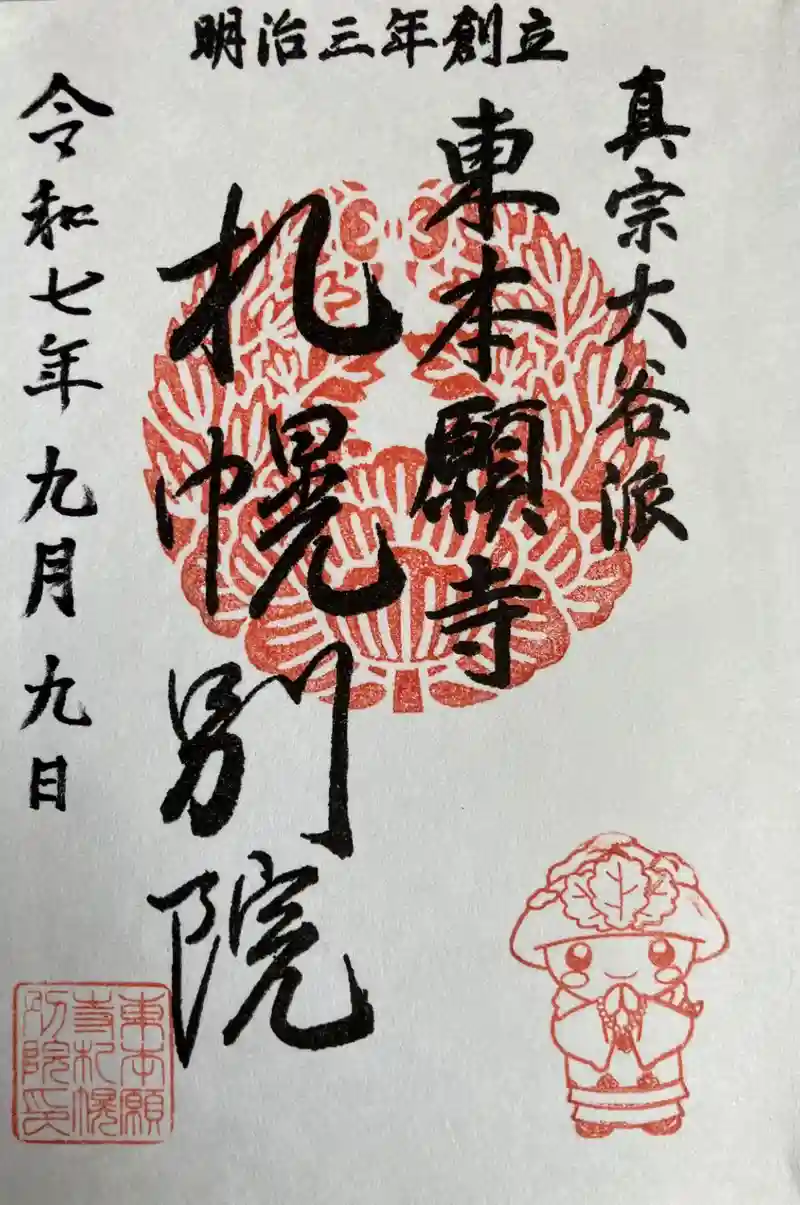 明治三年創立
真宗大谷派
東本願寺
札幌別院
令和七年九月九日
東本願
寺札幌
別院印